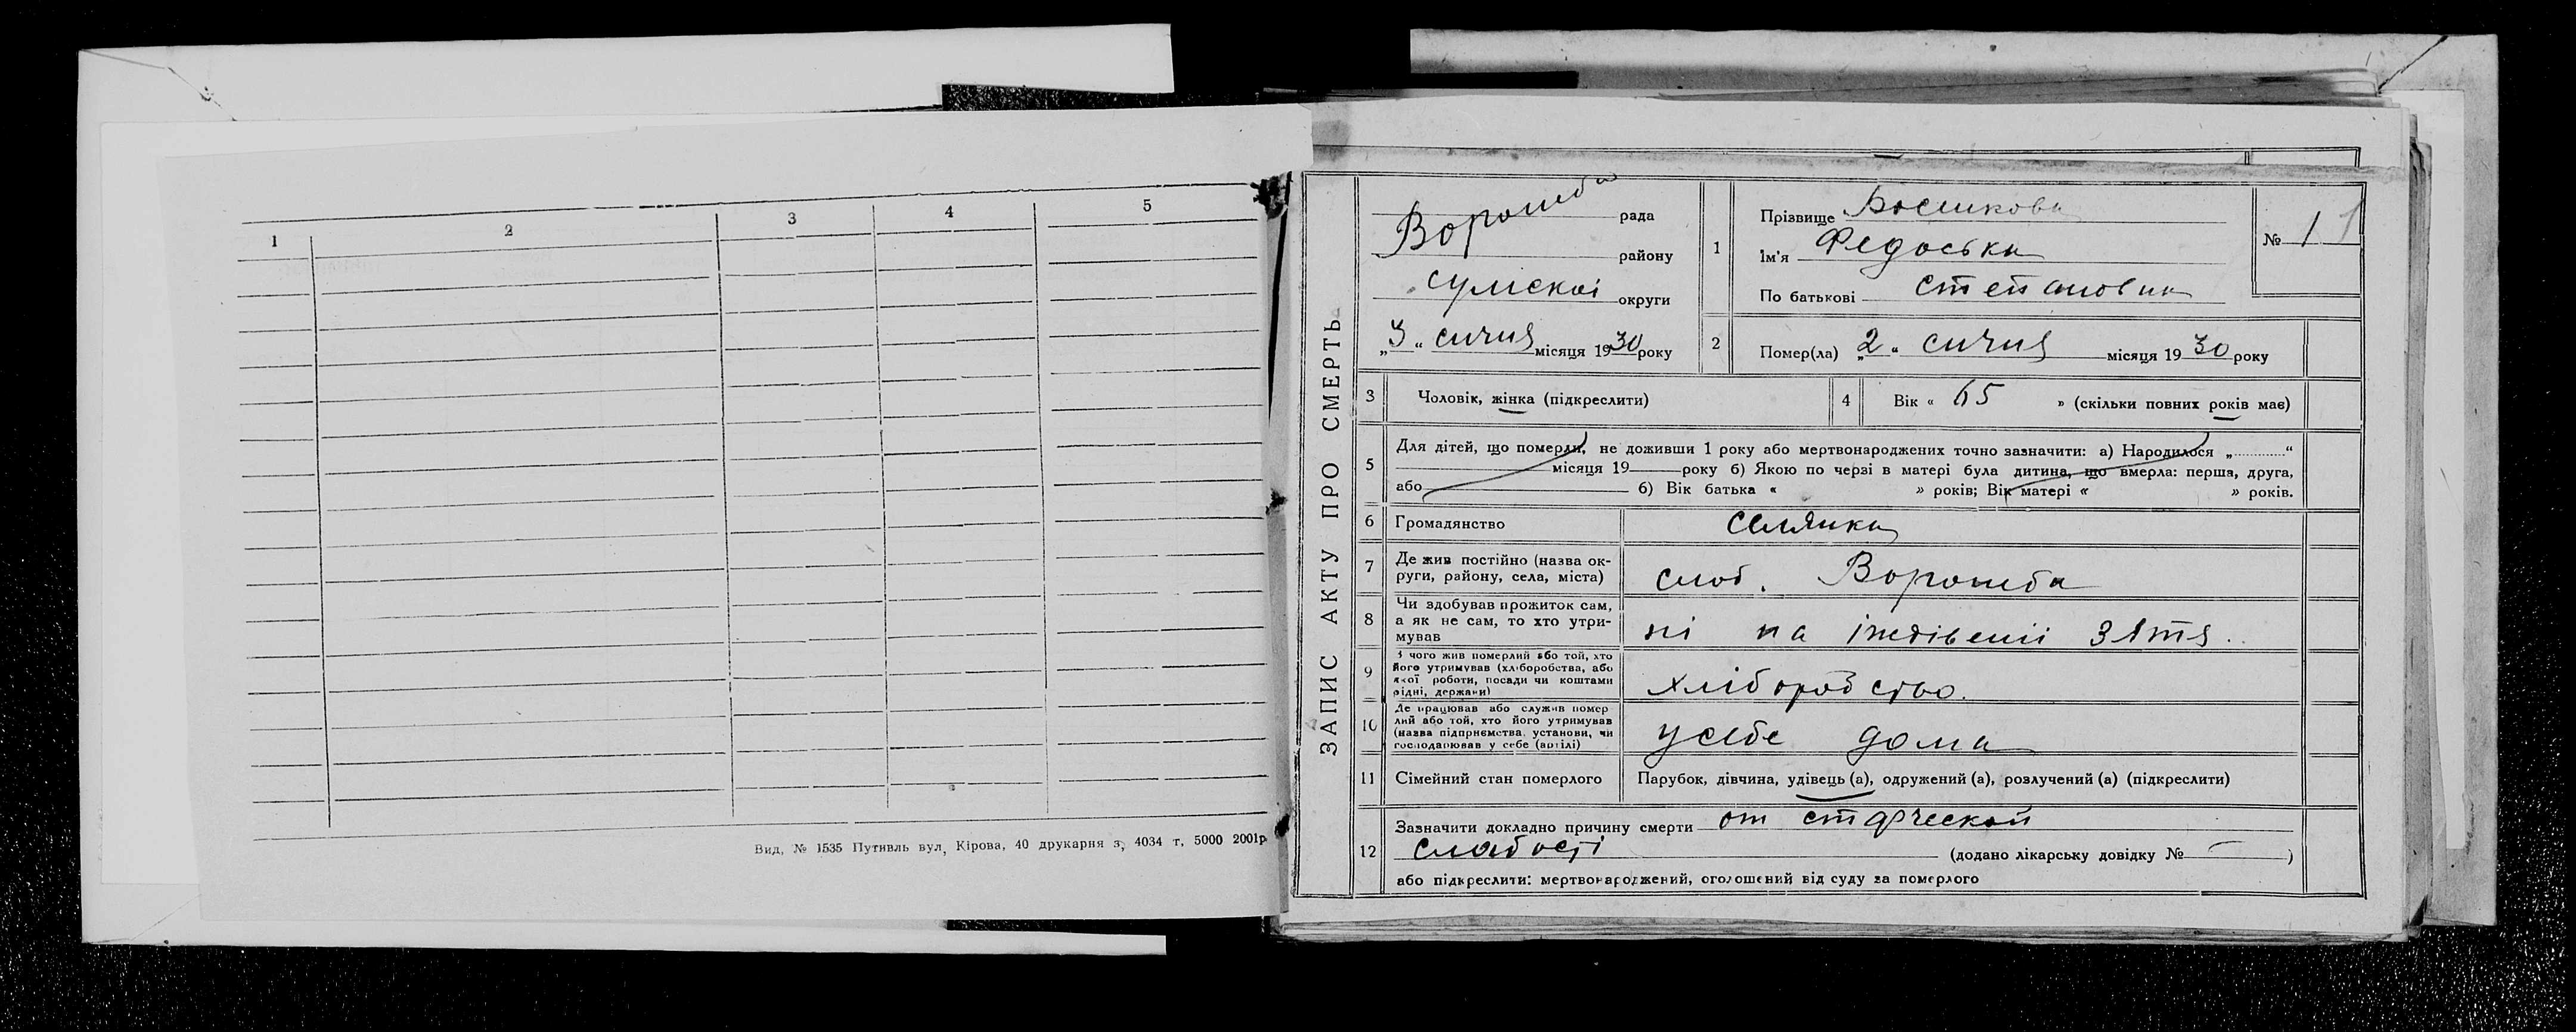 1 2 3 4 5
Вид, № 1535 Путивль вул, Кірова, 40 друкарня з, 4034 т, 5000 2001р.
ЗАПИС АКТУ ПРО СМЕРТЬ
Ворожба рада
району
Сумскоі округи
„3“ січня місяця 1930 року
1 Прізвище
Ім'я Федоська
По батькові Степановна
№ 1 1
2 Помер(ла) „2“ січня місяця 1930 року
3 Чоловік, жінка (підкреслити)
4 Вік « 65 » (скільки повних років має)
5 Для дітей, що померли, не доживши 1 року або мертвонароджених точно зазначити: а) Народилося „ “
місяця 19 року б) Якою по черзі в матері була дитина, що вмерла: перша, друга,
або б) Вік батька « » років; Вік матері « » років.
6 Громадянство селянка
7 Де жив постійно (назва ок-
руги, району, села, міста) слоб. Ворожба
8 Чи здобував прожиток сам,
а як не сам, то хто утри-
мував ні на іждівеніі зятя.
9 З чого жив померлий або той, хто
його утримував (хліборобства, або
якої роботи, посади чи коштами
рідні, держави) хліборобство.
10 Де працював або служив помер
лий або той, хто його утримував
(назва підприємства, установи, чи
господарював у себе (артілі) у себе дома
11 Сімейний стан померлого Парубок, дівчина, удівець (а), одружений (а), розлучений (а) (підкреслити)
12 Зазначити докладно причину смерти от старческой
слабості (додано лікарську довідку № — )
або підкреслити: мертвонароджений, оголошений від суду за померлого